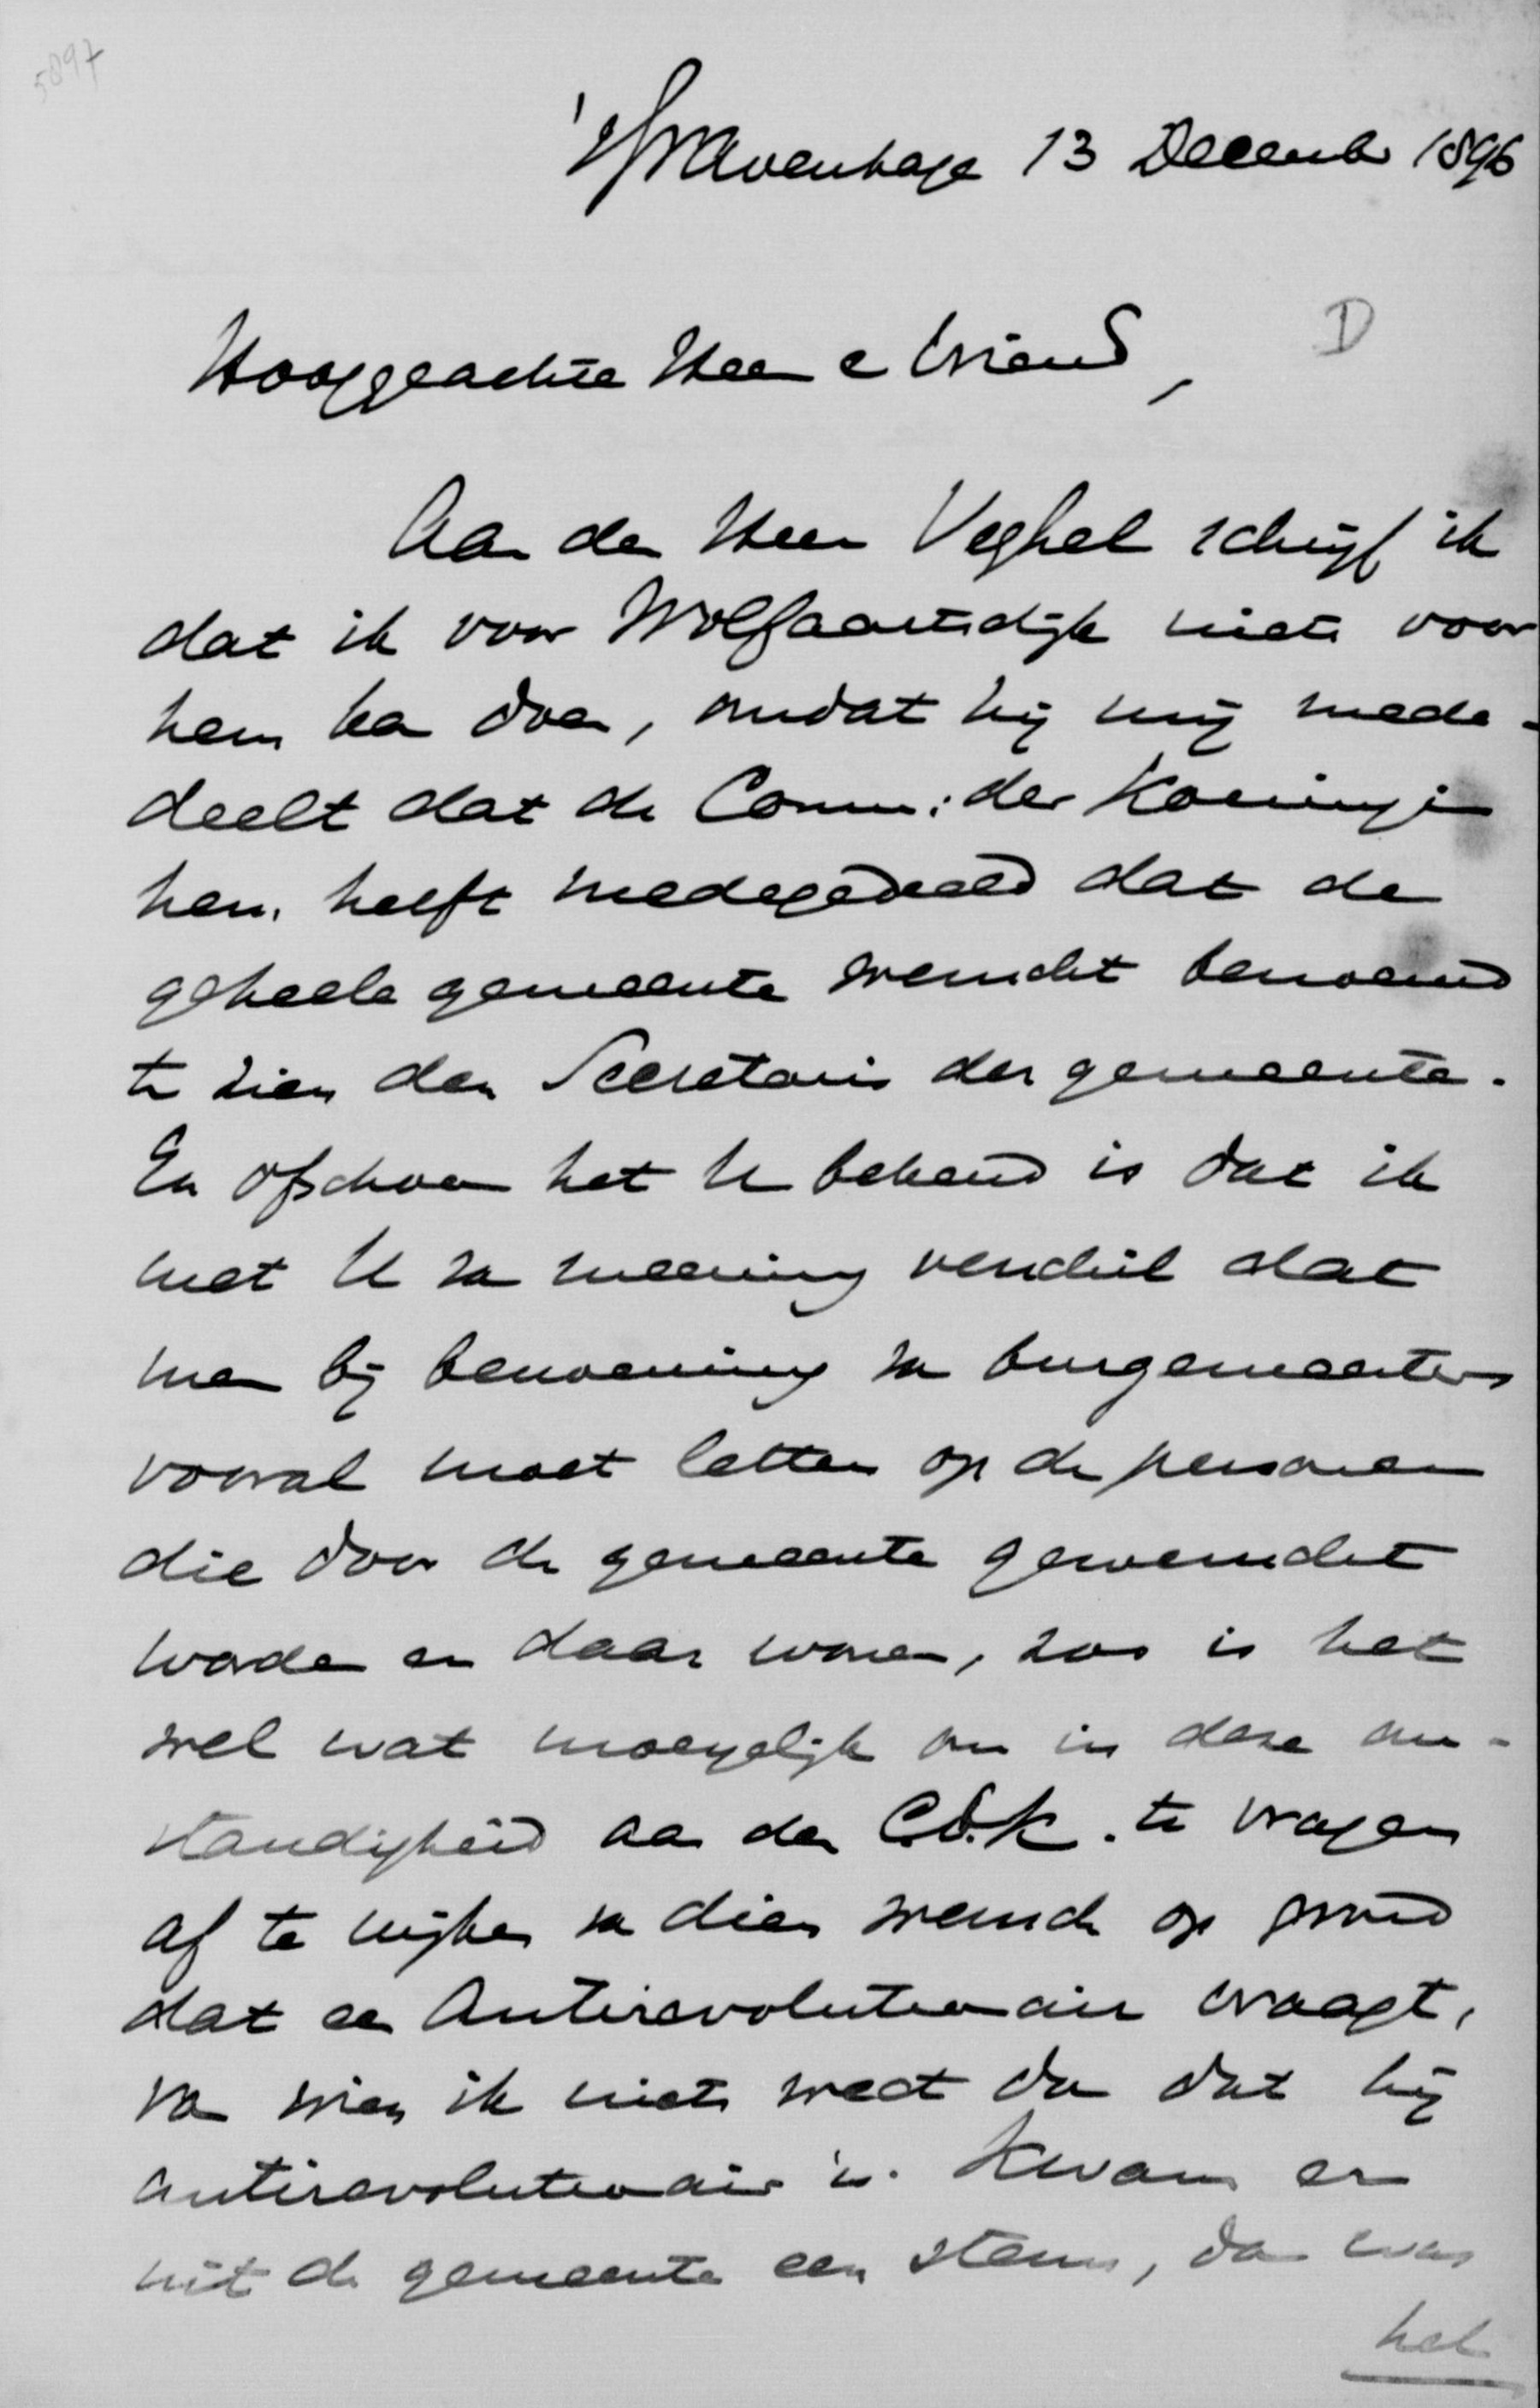 5897
's Gravenhage 13 December 1896
D
Hooggeachte Heer en Vriend,
Aan den Heer Veghel schrijf ik
dat ik voor Wolfaartsdijk niets voor
hem kan doen, omdat hij mij mede-
deelt dat de Comm: der Koningin
hem heeft medegedeeld dat de
geheele gemeente wenscht benoemd
te zien den Secretaris der gemeente.
En ofschoon het U bekend is dat ik
met U van meening verschil dat
men bij benoeming van burgemeesters
vooral moet letten op de personen
die door de gemeente gewenscht
worden en daar wonen, zoo is het
wel wat moeyelijk om in deze om-
standigheid aan den C.d.K. te vragen
af te wijken van dien wensch op grond
dat een Antirevolutionair vraagt,
van wien ik niets weet dan dat hij
antirevolutionair is. Kwam er
uit de gemeente een stem, dan was
het